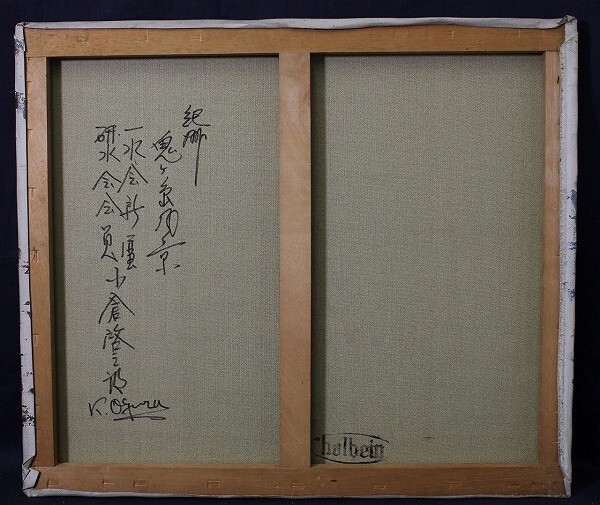 紀州
鬼ヶ島風景
一水会新匠
研水会会員小倉啓之祐
K. Ogura
holbein